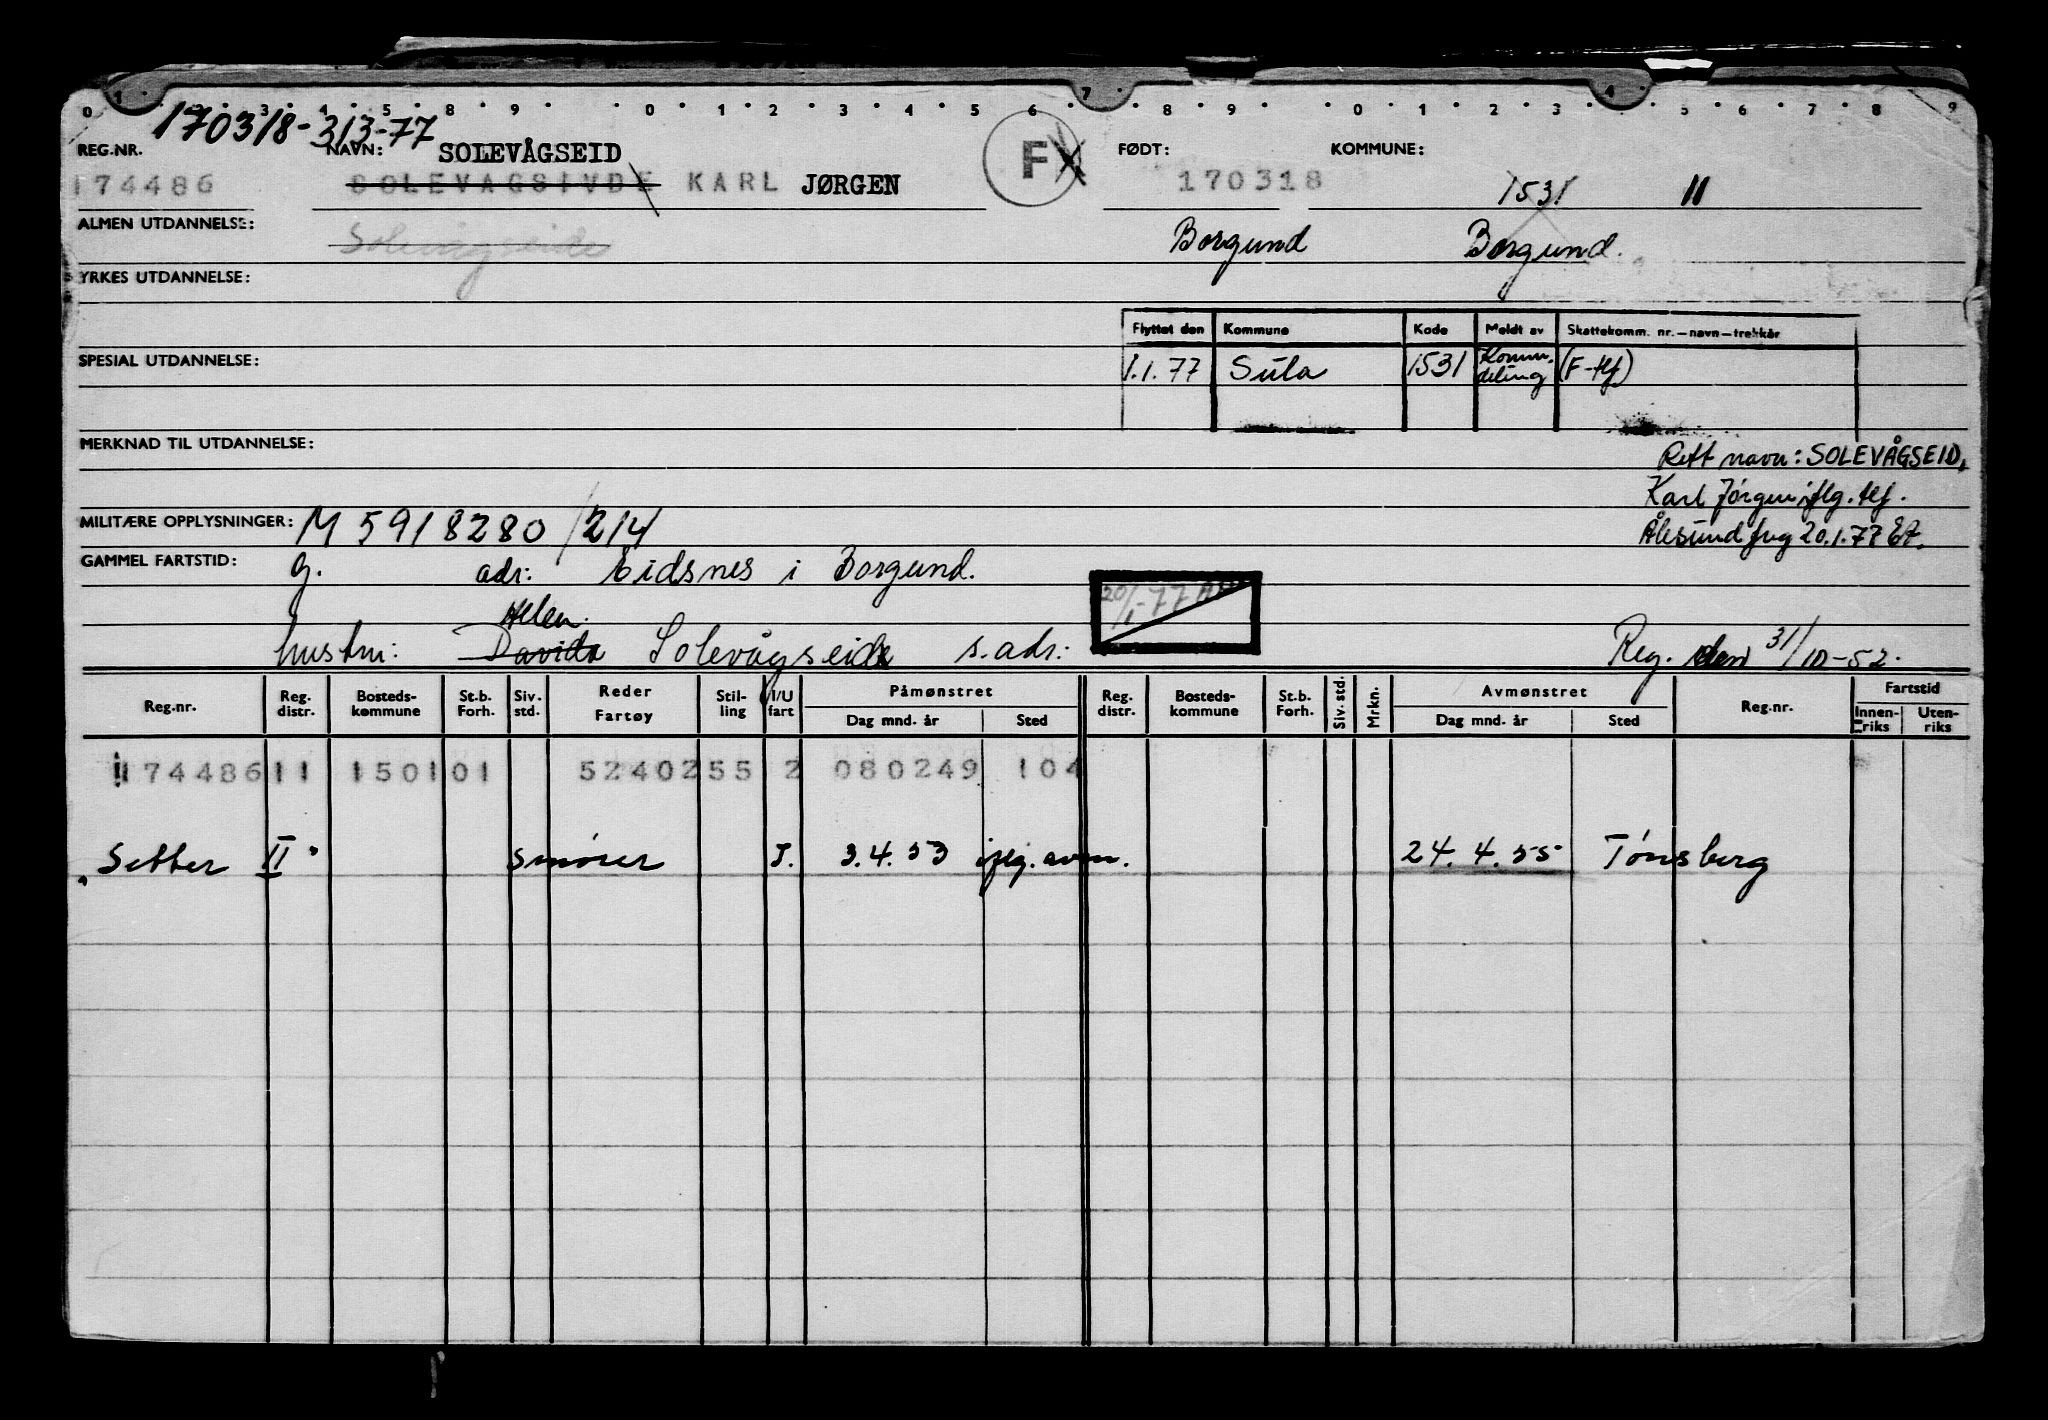 0 1 3 4 5 8 9 0 1 2 3 4 5 6 7 8 9 0 1 2 3 4 5 6 7 8 9
170318-313-77
REG.NR. NAVN: SOLEVÅGSEID F FØDT: KOMMUNE:
174486 SOLEVAGSIVDE KARL JØRGEN 170318 1531 11
ALMEN UTDANNELSE: Solevågseide Borgund Borgund.
YRKES UTDANNELSE:
Flyttet den Kommune Kode Meldt av Skattekomm. nr.—navn—trekkår
SPESIAL UTDANNELSE: 1.1.77 Sula 1531 Komm.deling (F-tlf)
MERKNAD TIL UTDANNELSE:
Rett navn: SOLEVÅGSEID,
Karl Jørgen iflg. tlf.
MILITÆRE OPPLYSNINGER: M 5918280/214
Ålesund fvg 20.1.77
GAMMEL FARTSTID: g. adr: Eidsnes i Borgund.
20/1-77
Helen.
hustru: Davida Solevågseide s.adr: Reg. den 31/10-52.
Reg.nr. Reg. distr. Bosteds-kommune St.b. Forh. Siv. std. Reder Fartøy Stil-ling I/U fart Påmønstret Dag mnd. år Sted Reg. distr. Bosteds-kommune St.b. Forh. Siv. std. Mrkn. Avmønstret Dag mnd. år Sted Reg.nr. Fartstid Innen-riks Uten-riks
174486 11 1501 01 5240255 2 080249 104
Setter II Smører I. 3.4.53 iflg. avm. 24.4.55 Tønsberg